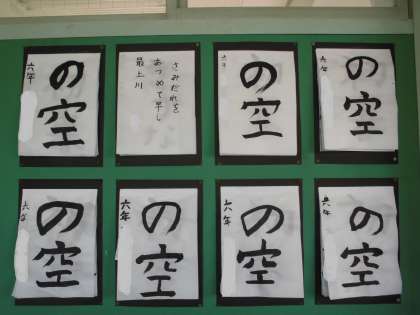 の空
六年
さみだれを
あつめて早し
最上川
の空
六年
の空
六年
の空
六年
の空
六年
の空
六年
の空
六年